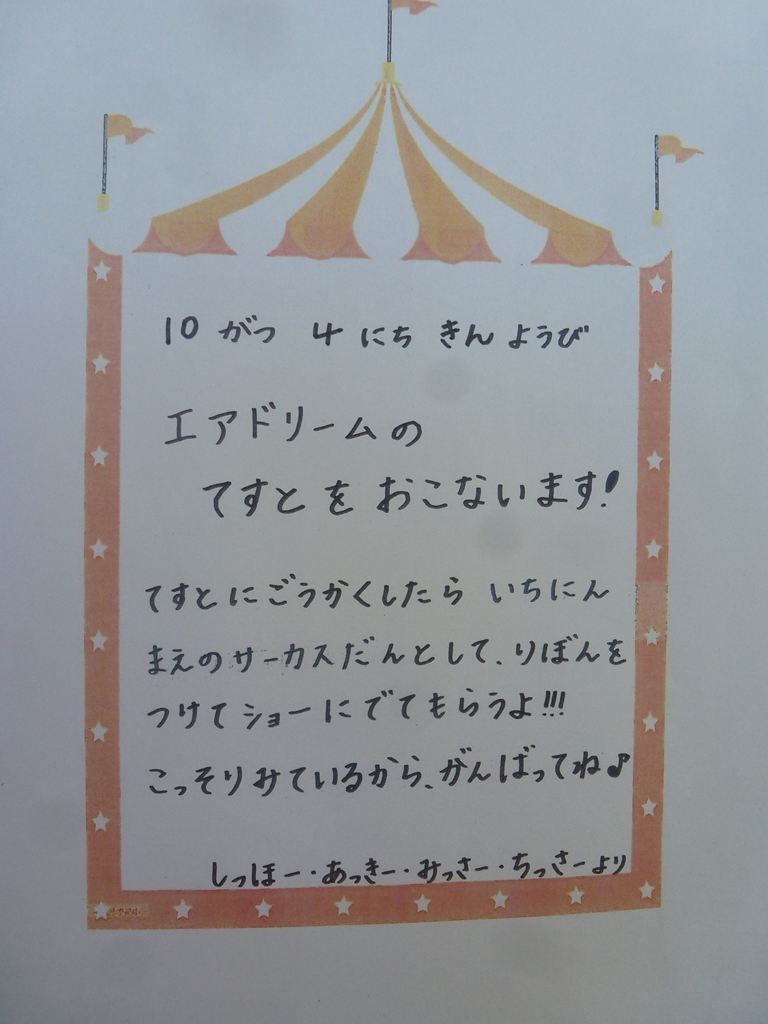 10 がつ 4 にち きんようび
エアドリームの
てすとを おこないます!
てすとにごうかくしたら いちにん
まえのサーカスだんとして、りぼんを
つけてショーにでてもらうよ!!!
こっそりみているから、がんばってね♪
しっほー・あっきー・みっさー・ちっさーより